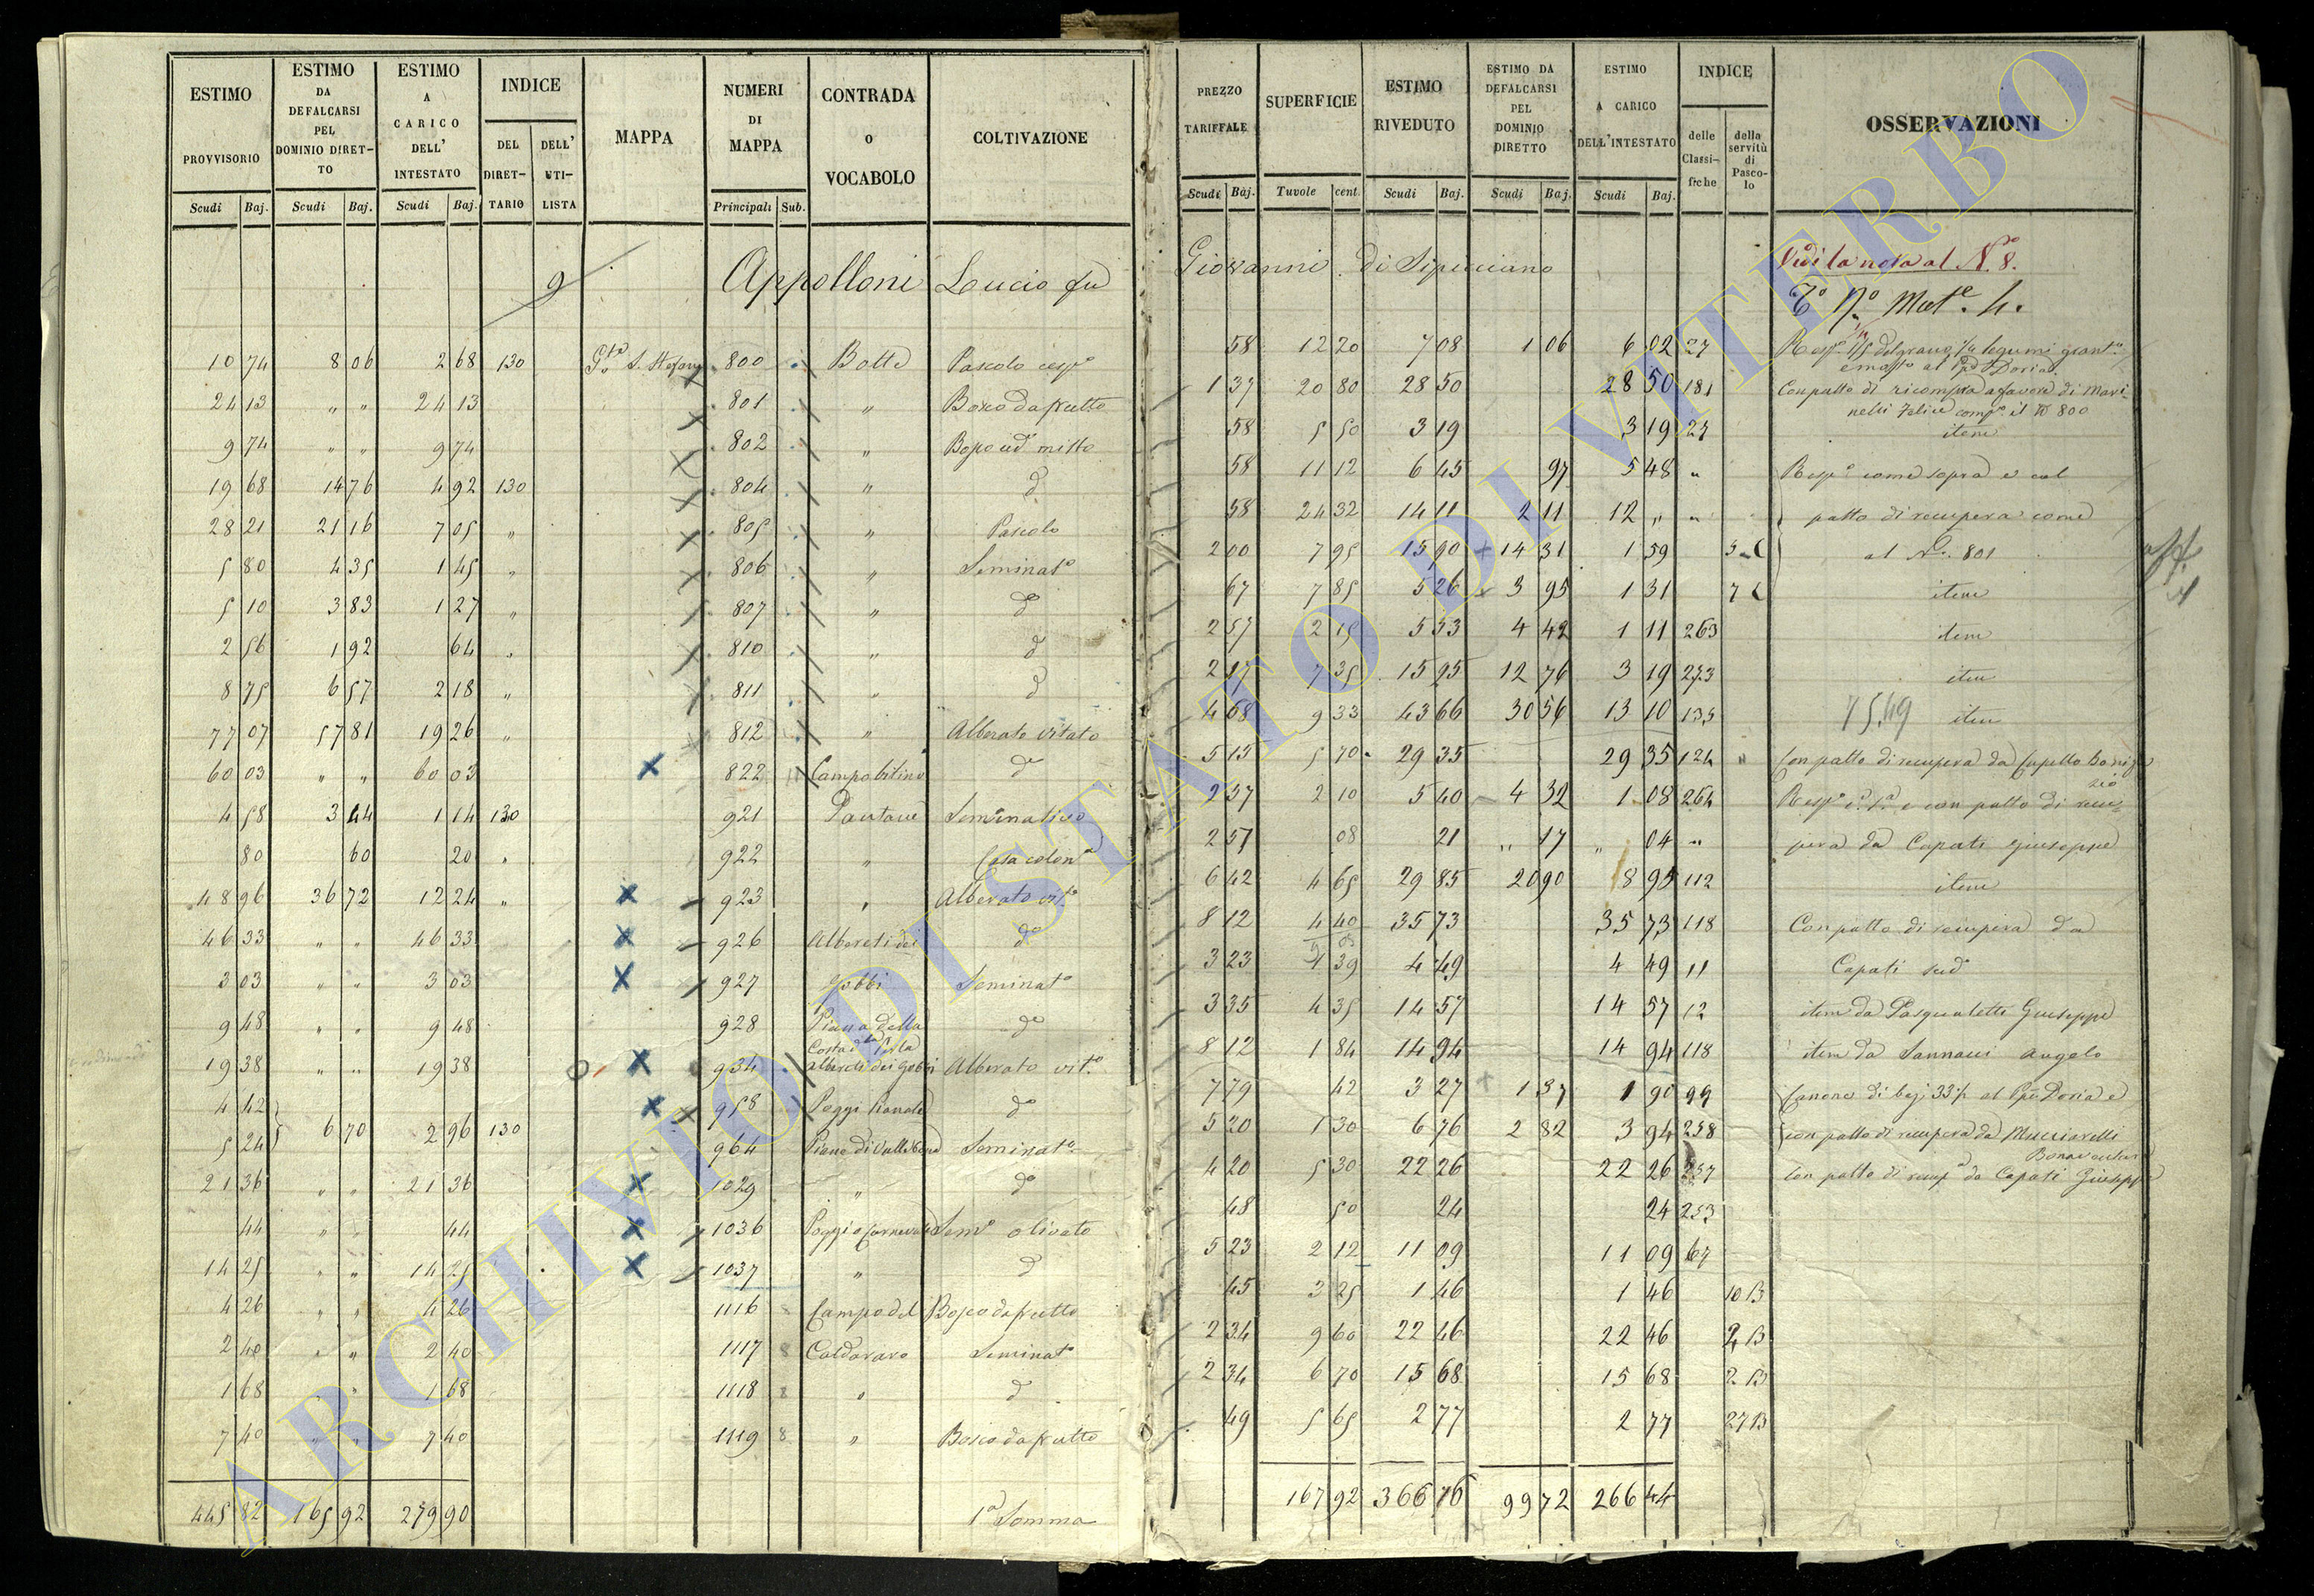 ESTIMO PROVVISORIO Scudi Baj.
ESTIMO DA DEFALCARSI PEL DOMINIO DIRET-TO Scudi Baj.
ESTIMO A CARICO DELL' INTESTATO Scudi Baj.
INDICE DEL DIRET-TARIO DELL' UTI-LISTA
MAPPA
NUMERI DI MAPPA Principali Sub.
CONTRADA o VOCABOLO
COLTIVAZIONE
PREZZO TARIFFALE Scudi Baj.
SUPERFICIE Tuvole cent.
ESTIMO RIVEDUTO Scudi Baj.
ESTIMO DA DEFALCARSI PEL DOMINIO DIRETTO Scudi Baj.
ESTIMO A CARICO DELL'INTESTATO Scudi Baj.
INDICE delle Classi-fiche della servitù di Pasco-lo
OSSERVAZIONI
9 Appolloni Lucio fu Giovanni di Sipicciano
Vidi la nota al N.º 8.
Nº Mate. 4.
10 74 8 06 2 68 130 S. Stefano 800 Botte Pascolo 58 12 20 7 08 1 06 6 02 27
24 13 " " 24 13 801 " Bosco da frutto 1 37 20 80 28 50 28 50 181 Con patto di ricompra a favore di Mari-
nelli Felice comp. il N 800
9 74 " " 9 74 802 " misto 58 5 50 3 19 3 19 27 item
19 68 14 76 4 92 130 804 " dº 58 11 12 6 45 97 5 48 " Resp.e come sopra e col
28 21 21 16 7 05 " 805 " Pascolo 58 24 32 14 11 2 11 12 " " patto di recupera come
5 80 4 35 1 45 " 806 " Seminatº 2 00 7 95 15 90 14 31 1 59 al Nº. 801
5 10 3 83 1 27 " 807 " dº 67 7 85 5 26 3 95 1 31 item
2 56 1 92 64 " 810 " dº 2 57 2 15 5 53 4 42 1 11 263 item
8 75 6 57 2 18 " 811 " dº 2 17 7 35 15 95 12 76 3 19 273 item
77 07 57 81 19 26 " 812 " Alberato Vitato 4 68 9 33 43 66 30 56 13 10 135 item
60 03 " " 60 03 822 dº 5 15 5 70 29 35 29 35 124 Con patto di recupera da
4 58 3 44 1 14 130 921 Pantane Seminativo 2 57 2 10 5 40 4 32 1 08 264 e con patto di recu-
80 60 20 " 922 " Casa colona 2 57 08 21 " 17 " 04 " pera da Capati Giuseppe
48 96 36 72 12 24 " 923 " Alberato vitº 6 42 4 65 29 85 20 90 8 95 112 item
46 33 " " 46 33 926 Albereti dei dº 8 12 4 40 35 73 35 73 118 Con patto di recupera da
3 03 " " 3 03 927 Gobbi Seminatº 3 23 1 39 4 49 4 49 11 Capati sudº
9 48 " " 9 48 928 Piana della dº 3 35 4 35 14 57 14 57 12 item da Pasqualetti Giuseppe
19 38 " " 19 38 934 albereti dei Gobbi Alberato vitº 8 12 1 84 14 94 14 94 118 item da Sannacci Angelo
4 42 958 Poggi dº 7 79 42 3 27 1 37 1 90 99 Canone di baj. 33 ½ al Doria e
5 24 6 70 2 96 130 964 Piano di Seminatº 5 20 1 30 6 76 2 82 3 94 258 con patto di recupera da Mucciarelli
Bonaventura
21 36 " " 21 36 1029 " dº 4 20 5 30 22 26 22 26 257 Con patto di recupª da Capati Giuseppe
44 " " 44 1036 Poggio Semº olivato 48 50 24 24 253
14 25 " " 14 25 1037 " dº 5 23 2 12 11 09 11 09 67
4 26 " " 4 26 1116 Campo del Bosco da frutto 45 3 25 1 46 1 46 10 B
2 40 " " 2 40 1117 8 Caldararo Seminatº 2 34 9 60 22 46 22 46 2 B
1 68 " 1 68 1118 8 " dº 2 34 6 70 15 68 15 68 2 B
7 40 " " 7 40 1119 8 " Bosco da frutto 49 5 65 2 77 2 77 27 B
445 82 165 92 279 90 1ª Somma 167 92 366 76 99 72 266 44
ARCHIVIO DI STATO DI VITERBO